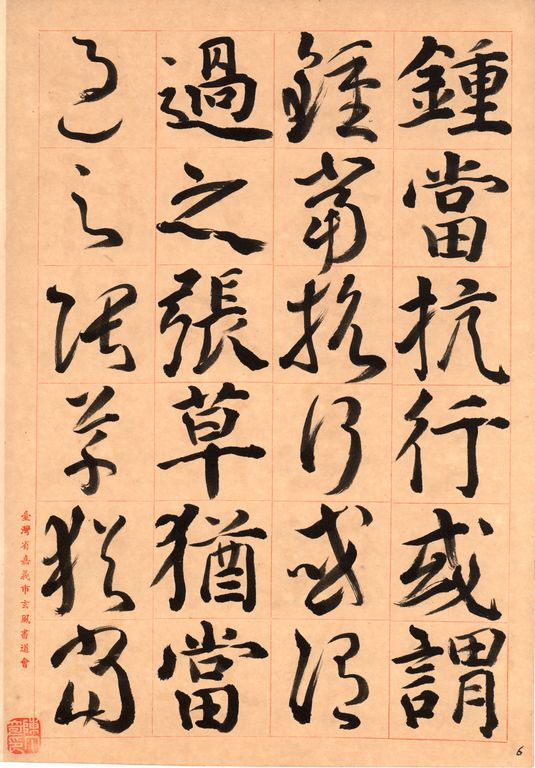 鍾當抗行或謂
鍾當抗行或謂
過之張草猶當
過之張草猶當
臺灣省嘉義市玄風書道會
6